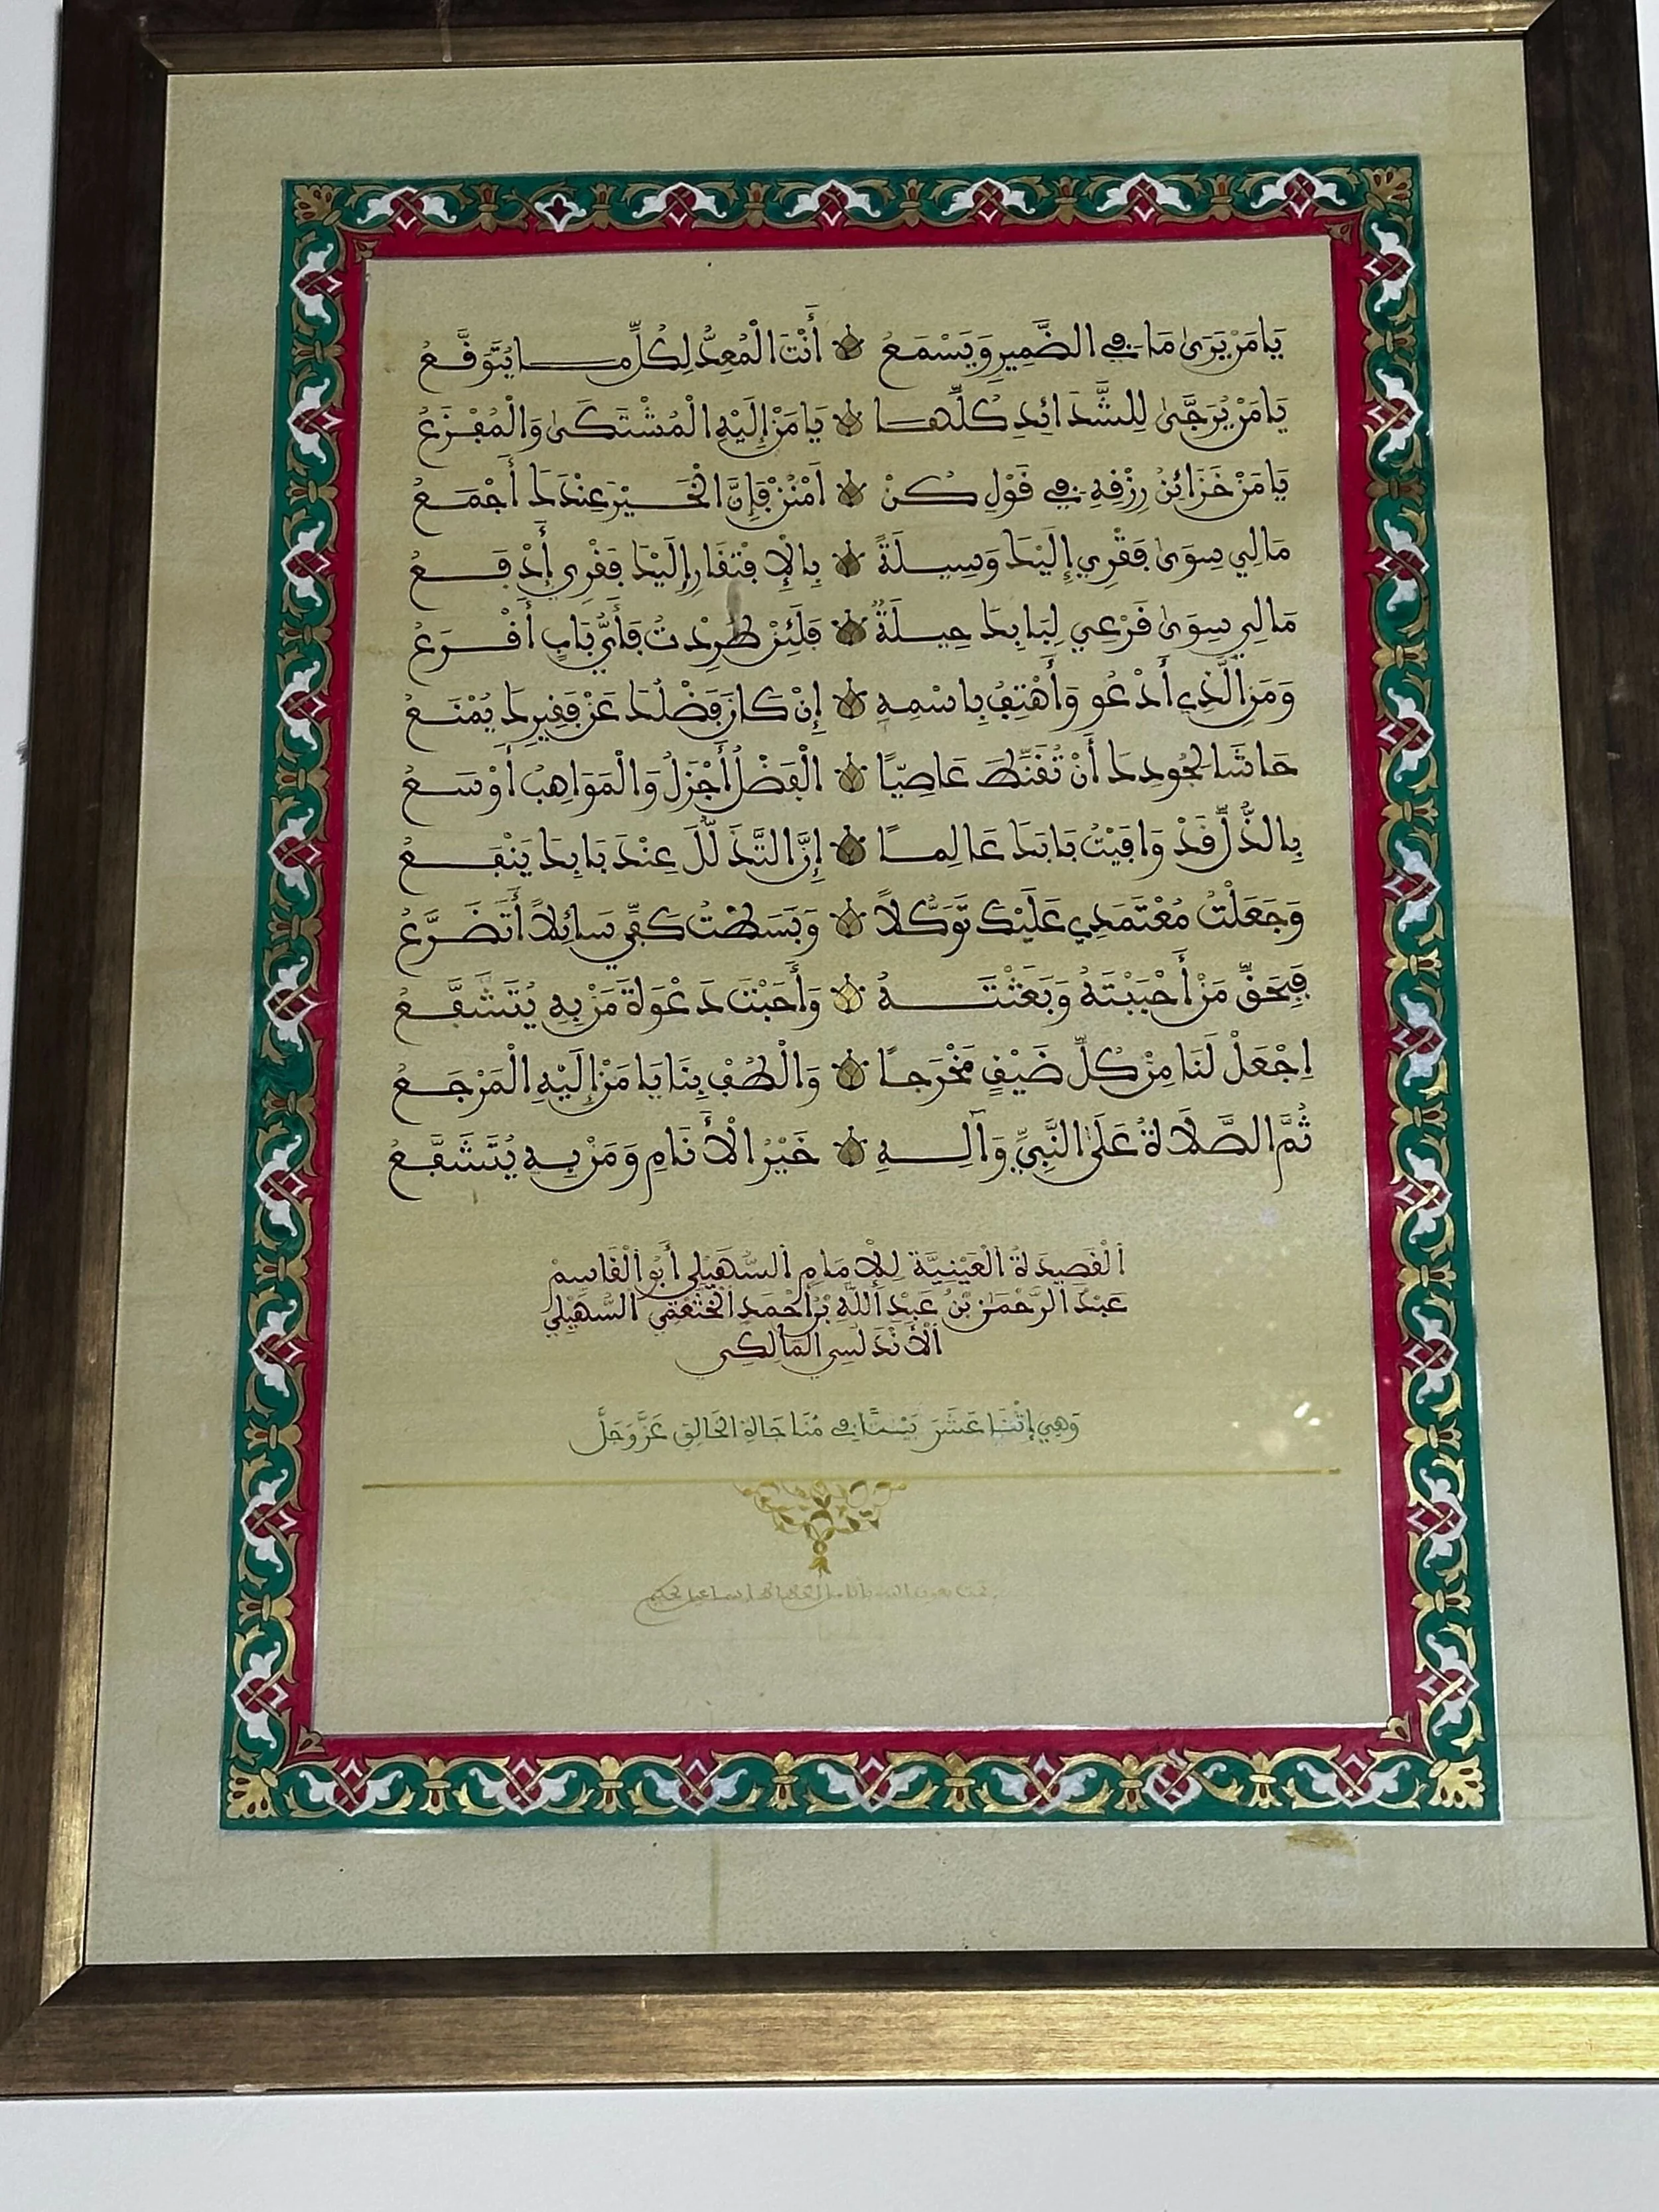 يَا مَنْ يَرَىٰ مَا فِي الضَّمِيرِ وَيَسْمَعُ أَنْتَ الْمُعِدُّ لِكُلِّ مَا يُتَوَقَّعُ
يَا مَنْ يُرَجَّىٰ لِلشَّدَائِدِ كُلِّهَا يَا مَنْ إِلَيْهِ الْمُشْتَكَىٰ وَالْمُفْزَعُ
يَا مَنْ خَزَائِنُ رِزْقِهِ فِي قَوْلِ كُنْ اَمْنُنْ فَإِنَّ الْخَيْرَ عِنْدَكَ أَجْمَعُ
مَالِي سِوَىٰ فَقْرِي إِلَيْكَ وَسِيلَةً بِالْإِفْتِقَارِ إِلَيْكَ فَقْرِي أَدْفَعُ
مَالِي سِوَىٰ قَرْعِي لِبَابِكَ حِيلَةٌ فَلَئِنْ طُرِدْتُ فَأَيُّ بَابٍ أَقْرَعُ
وَمَنِ الَّذِي أَدْعُو وَأَهْتِفُ بِاسْمِهِ إِنْ كَانَ فَضْلُكَ عَنْ فَقِيرِكَ يُمْنَعُ
حَاشَا لِجُودِكَ أَنْ تُقَنِّطَ عَاصِيًا الْفَضْلُ أَجْزَلُ وَالْمَوَاهِبُ أَوْسَعُ
بِالذُّلِّ قَدْ وَافَيْتُ بَابَكَ عَالِمًا إِنَّ التَّذَلُّلَ عِنْدَ بَابِكَ يَنْفَعُ
وَجَعَلْتُ مُعْتَمَدِي عَلَيْكَ تَوَكُّلاً وَبَسَطْتُ كَفِّي سَائِلاً أَتَضَرَّعُ
فَبِحَقِّ مَنْ أَحْبَبْتَهُ وَبَعَثْتَهُ وَأَجَبْتَ دَعْوَةَ مَنْ بِهِ يُتَشَفَّعُ
اِجْعَلْ لَنَا مِنْ كُلِّ ضَيْقٍ مَخْرَجًا وَالْطُفْ بِنَا يَا مَنْ إِلَيْهِ الْمَرْجَعُ
ثُمَّ الصَّلَاةُ عَلَى النَّبِيِّ وَآلِهِ خَيْرُ الْأَنَامِ وَمَنْ بِهِ يُتَشَفَّعُ
الْقَصِيدَةُ الْعَيْنِيَّةُ لِلْإِمَامِ السُّهَيْلِي أَبُو الْقَاسِمْ
عَبْدُ الرَّحْمَنِ بْنُ عَبْدِ اللَّهِ بْنِ أَحْمَدِ الْخَثْعَمِي السُّهَيْلِي
الْأَنْدَلُسِي الْمَالِكِي
وَهِيَ إِثْنَا عَشَرَ بَيْتًا فِي مُنَاجَاةِ الْخَالِقِ عَزَّ وَجَلَّ
تمت بعون الله